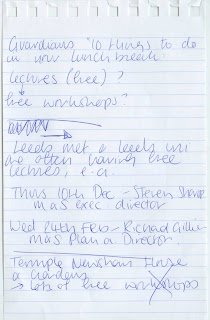 Guardians "10 things to do
in your lunch break"
lectures (free) ?
free workshops?
Leeds met & Leeds uni
are often having free
lectures, e.g.
Thurs 10th Dec - Steven
M&S exec director
Wed 24th Feb - Richard
M&S Plan A Director.
Temple Newsham House
& Gardens
→ lots of free workshops